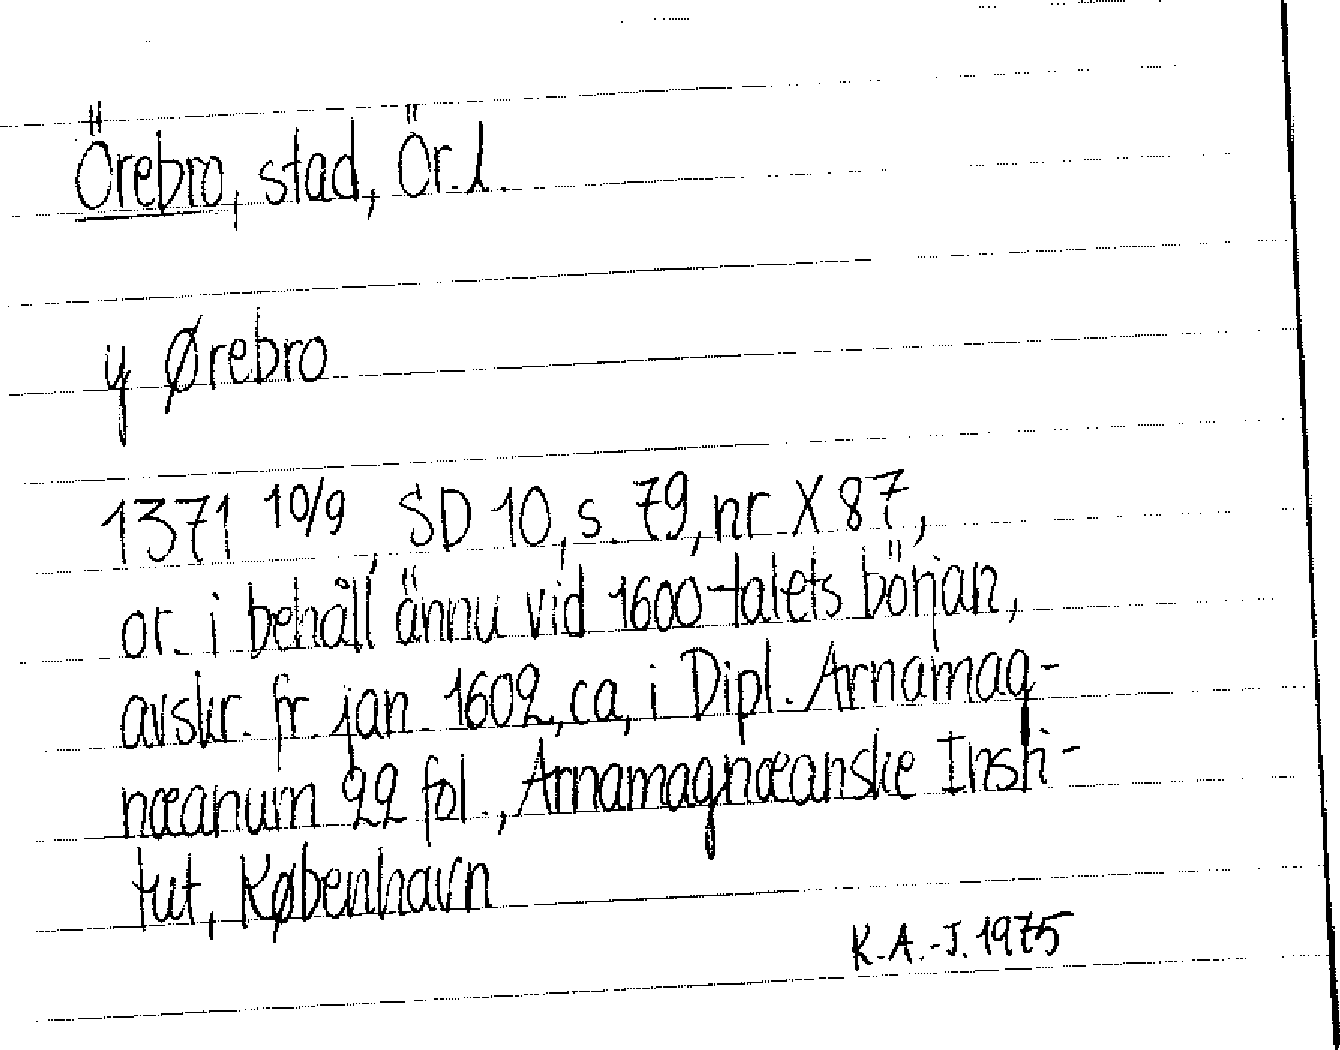 Örebro, stad, Ör. l.
y Ørebro
1371 10/9, SD 10, s. 79, nr X 87,
or. i behåll ännu vid 1600-talets början,
avskr. fr. jan. 1602, ca, i Dipl. Arnamag-
næanum 22 fol., Arnamagnæanske Insti-
tut, København
K.A.-J. 1975